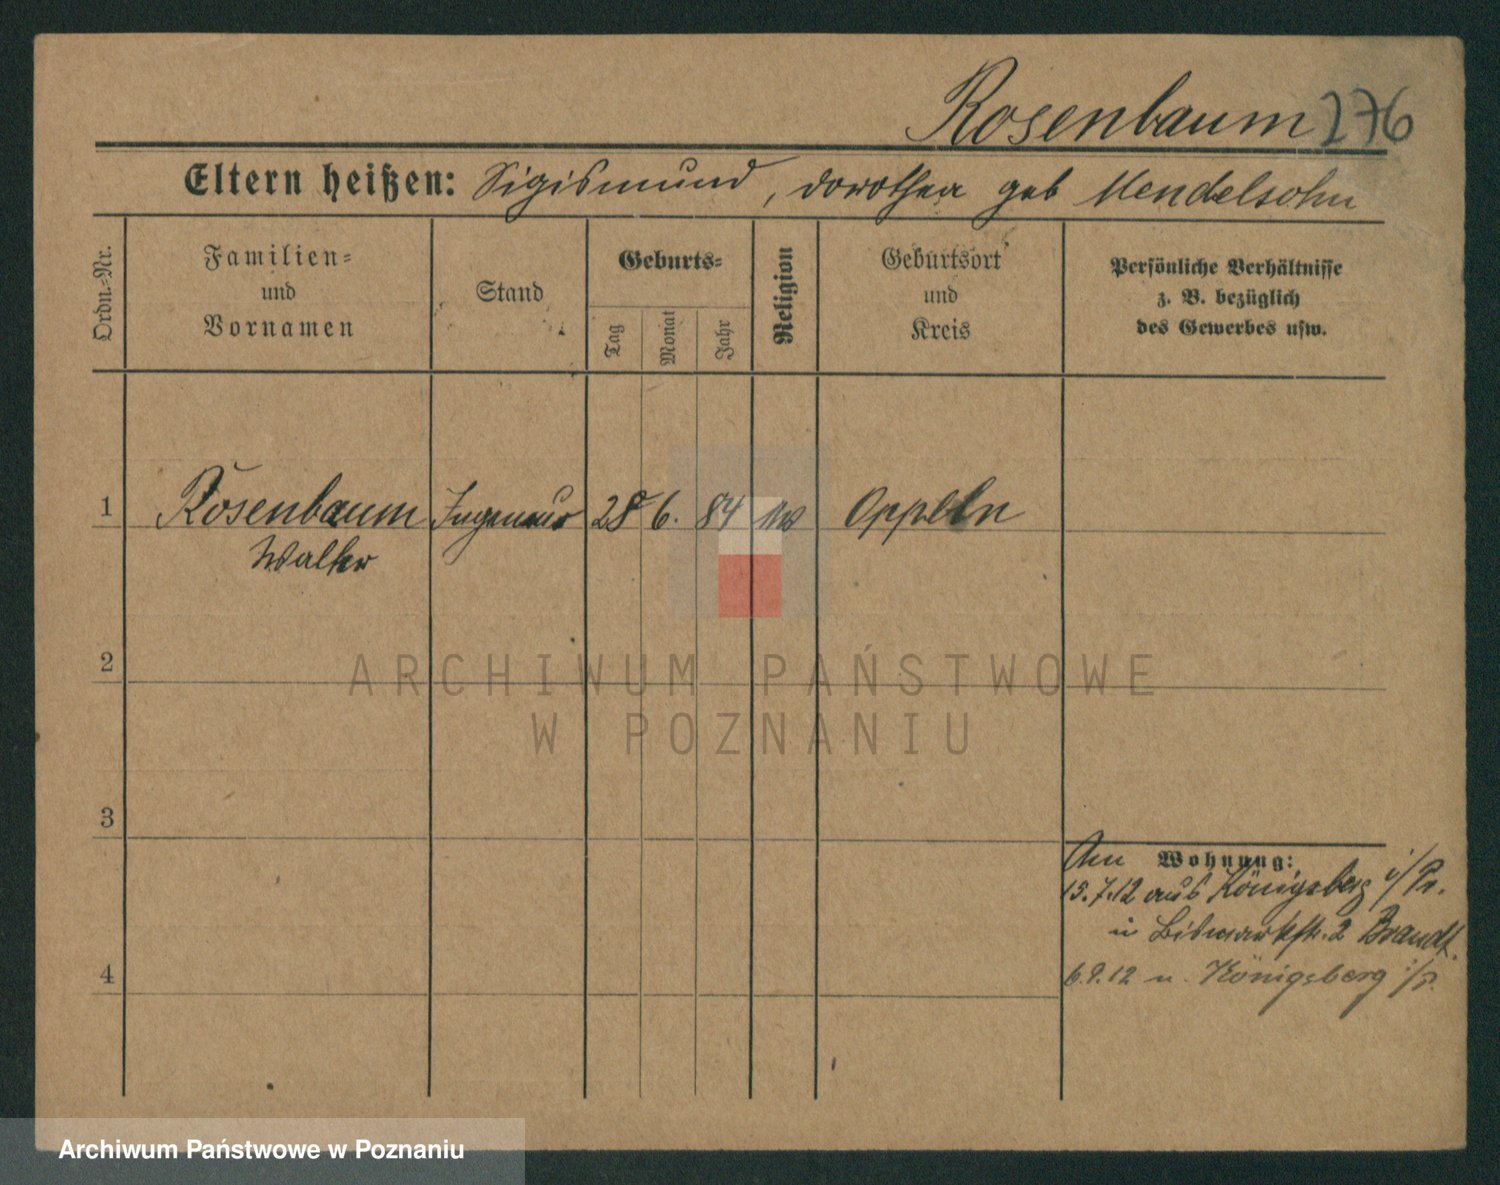 Rosenbaum 276
Eltern heißen: Sigismund, Dorothea geb Mendelsohn
Ordn.-Nr.
Familien-
und
Vornamen
Stand
Geburts-
Tag
Monat
Jahr
Religion
Geburtsort
und
Kreis
Persönliche Verhältnisse
z. B. bezüglich
des Gewerbes usw.
1 Rosenbaum Ingenieur 28 6. 84 Oppeln
Walter
2
ARCHIWUM PAŃSTWOWE
W POZNANIU
3
Am Wohnung:
15.7.12 aus Königsberg i/Pr.
in Bismarkstr. 2 Brandt.
4
6.9.12 n. Königsberg i/P.
Archiwum Państwowe w Poznaniu